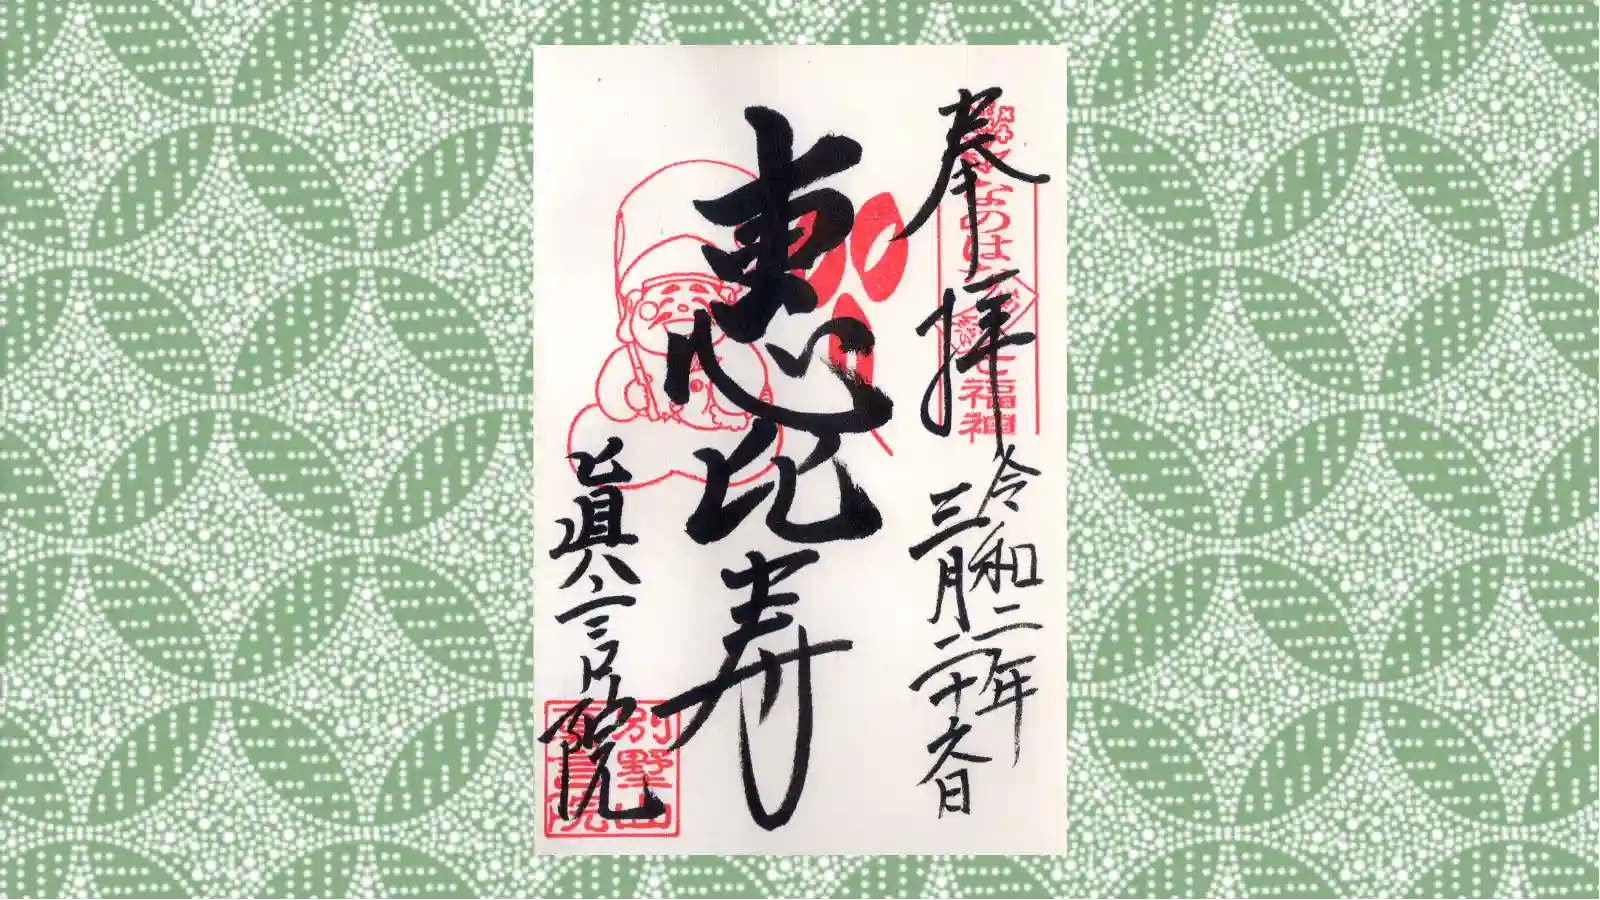 奉拝
なのは
七福神
令和二年
三月二十六日
恵比寿
眞言院
別野山
言院